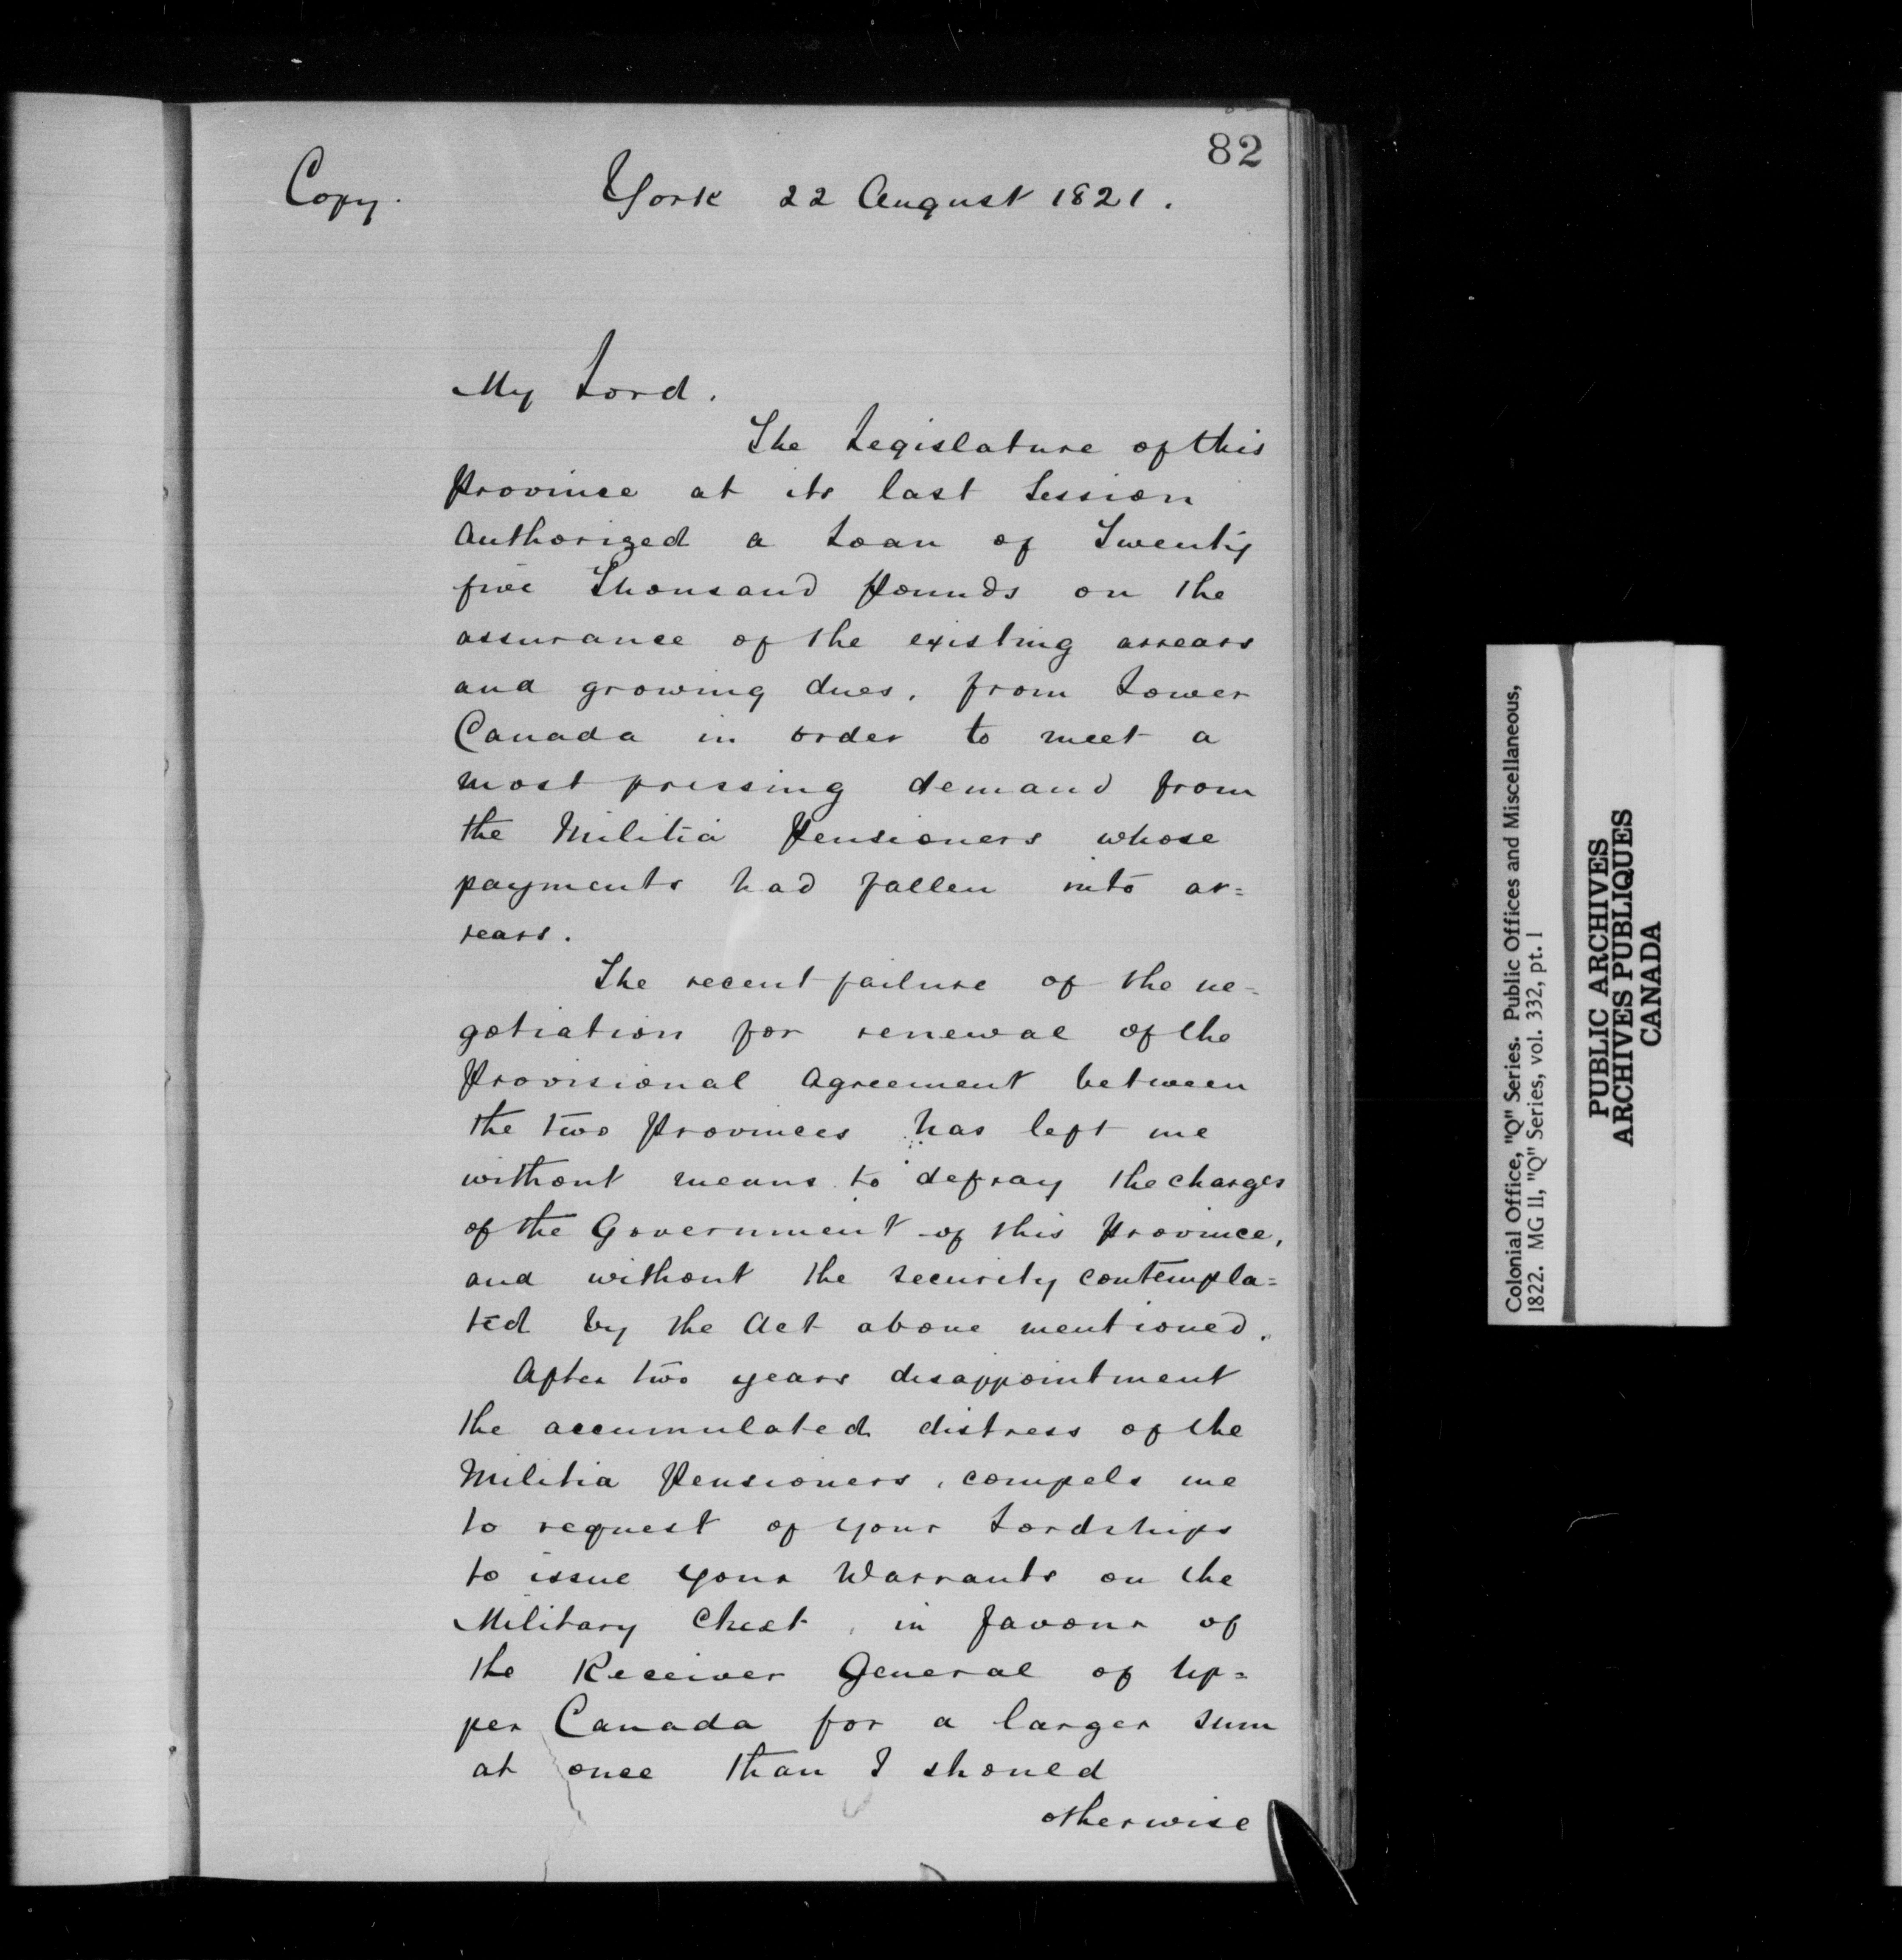 82
Copy. York 22 August 1821.
My Lord.
The Legislature of this
Province at its last Session
Authorized a Loan of Twenty
five Thousand Pounds on the
assurance of the existing arrears
and growing dues, from Lower
Canada in order to meet a
most pressing demand from
the Militia Pensioners whose
payments had fallen into ar=
rears.
The recent failure of the ne=
gotiation for renewal of the
Provisional Agreement between
the two Provinces has left me
without means to defray the charges
of the Government of this Province,
and without the security contempla=
ted by the Act above mentioned.
After two years disappointment
the accumulated distress of the
Militia Pensioners, compels me
to request of your Lordships
to issue your Warrants on the
Military Chest, in favour of
the Receiver General of Up=
per Canada for a larger sum
at once than I should
otherwise
Colonial Office, "Q" Series. Public Offices and Miscellaneous,
1822. MG 11, "Q" Series, vol. 332, pt. 1
PUBLIC ARCHIVES
ARCHIVES PUBLIQUES
CANADA